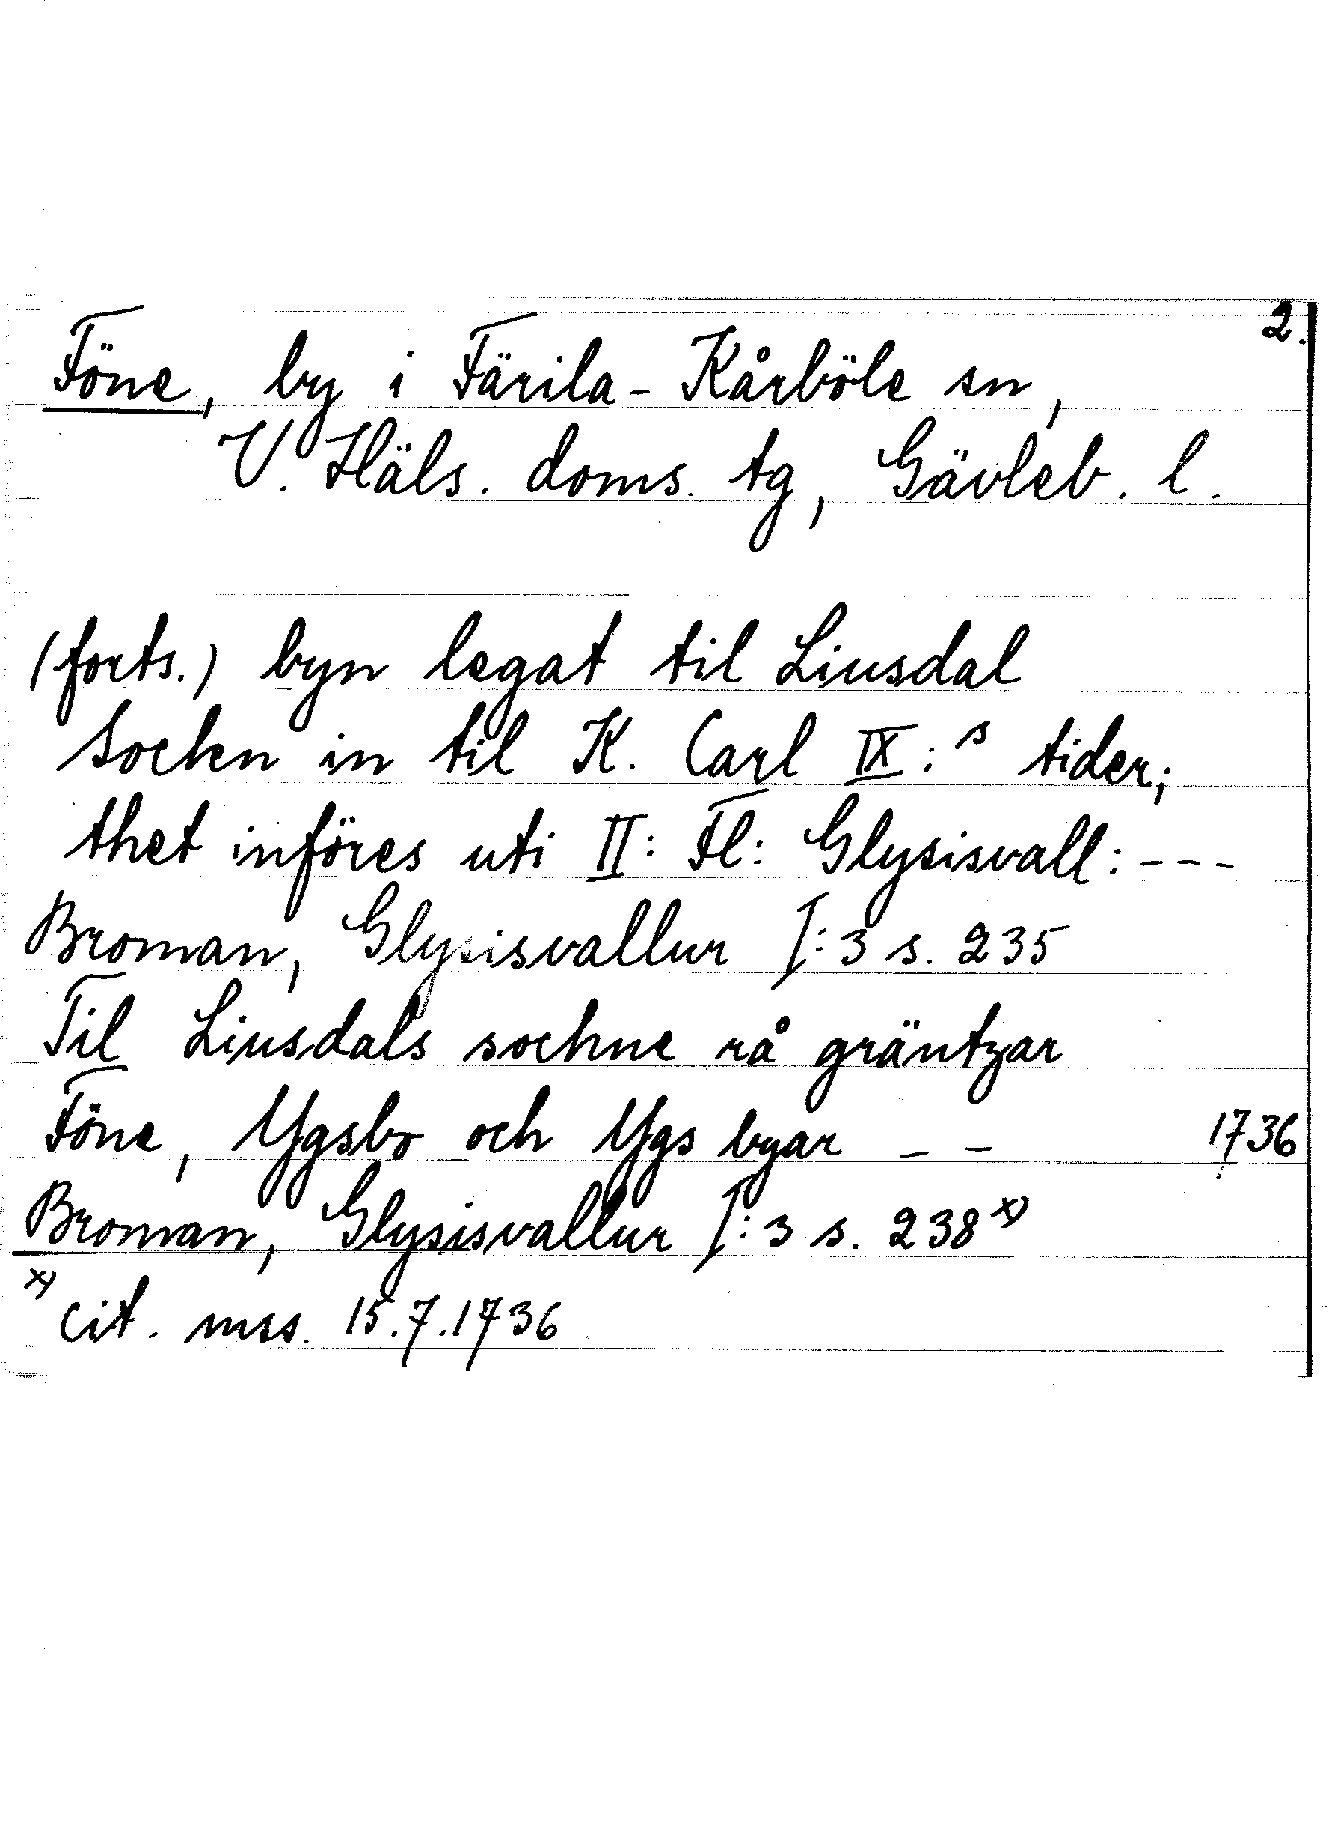 2.
Föne, by i Färila-Kårböle sn,
V. Häls. doms. tg, Gävleb. l.
(forts.) byn legat til Liusdal
Socken in til K. Carl IX:s tider;
thet införes uti II: Fl: Glysisvall: ---
Broman, Glysisvallur I:3 s. 235
Til Liusdals sochne rå gräntzar
Föne, Ygsbo och Ygs byar -- 1736
Broman, Glysisvallur I:3 s. 238 x)
x) cit. mss. 15.7.1736